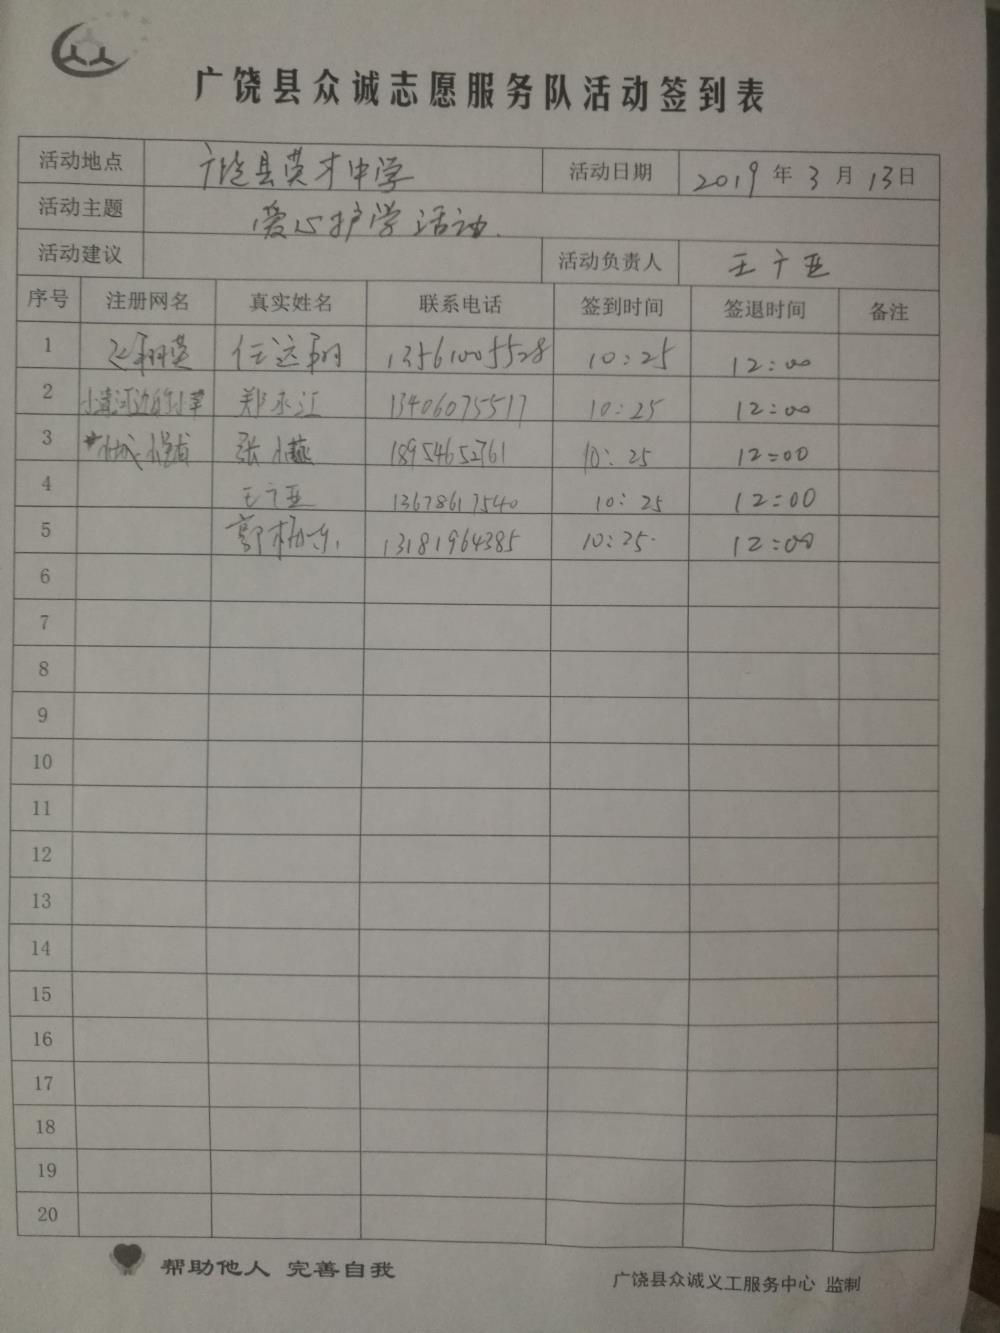 广饶县众诚志愿服务队活动签到表
活动地点 广饶县英才中学 活动日期 2019年3月13日
活动主题 爱心护学活动.
活动建议 活动负责人 王广亚
序号 注册网名 真实姓名 联系电话 签到时间 签退时间 备注
1 任远翔 13561005528 10:25 12:00
2 郑永江 13406075517 10:25 12:00
3 张小燕 18954652761 10:25 12:00
4 王广亚 13678617540 10:25 12:00
5 郭 13181964385 10:25 12:00
6
7
8
9
10
11
12
13
14
15
16
17
18
19
20
帮助他人 完善自我
广饶县众诚义工服务中心 监制